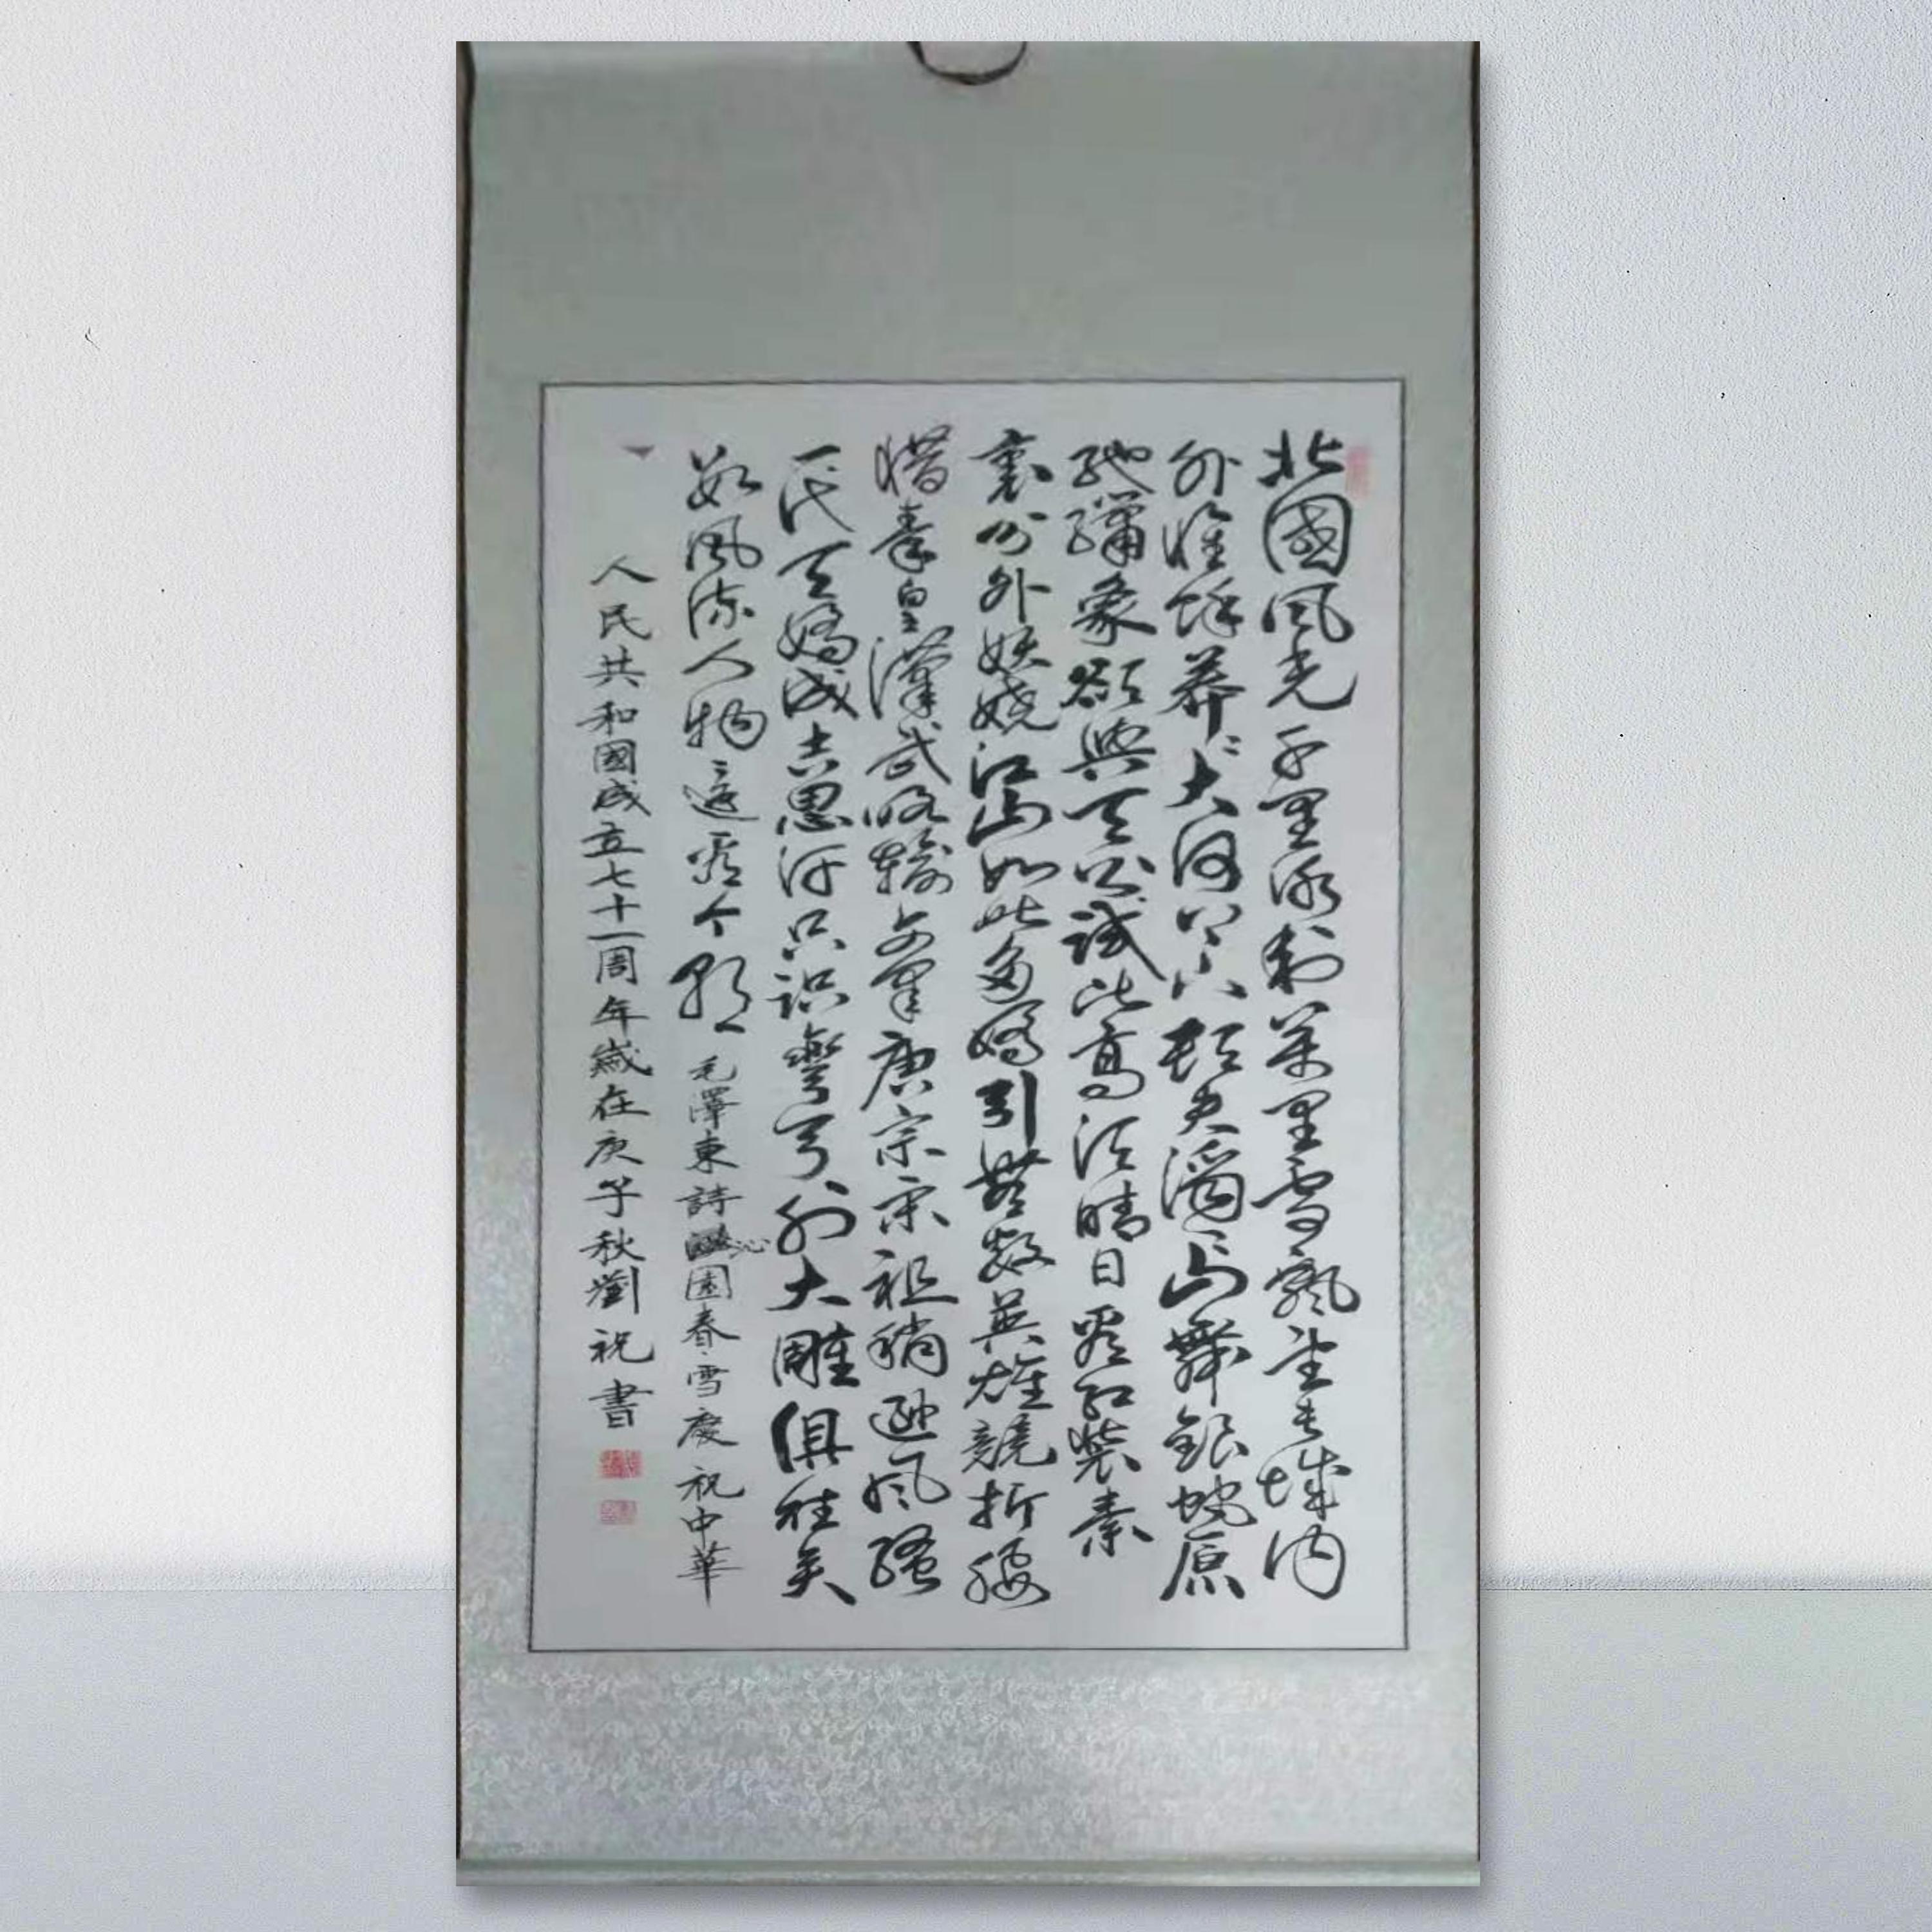 北國風光千里冰封萬里雪飄望長城内
外惟餘莽〻大河上下頓失滔〻山舞銀蛇原
馳蠟象欲與天公試比高須晴日看紅裝素
裹分外妖嬈江山如此多嬌引無數英雄競折腰
惜秦皇漢武略輸文唐宗宋祖稍遜風騷
一代天嬌成吉思汗只識彎弓射大雕俱往矣
數風流人物還看今朝毛澤東詩沁園春雪慶祝中華
人民共和國成立七十一周年歲在庚子秋劉祝書